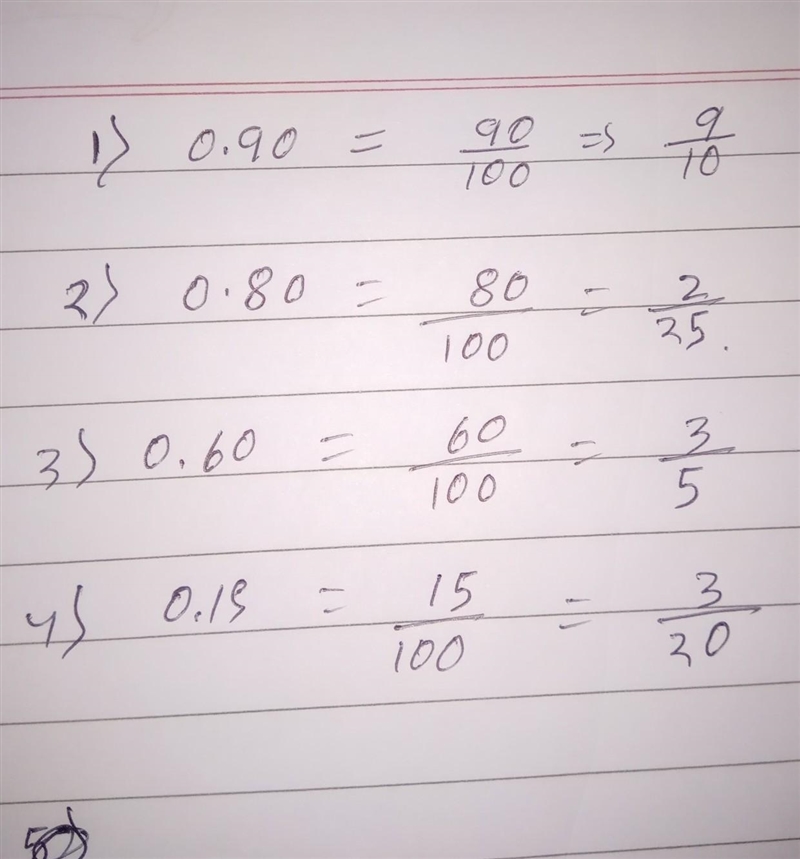 1) 0.90 = 90/100 => 9/10
2) 0.80 = 80/100 = 2/25.
3) 0.60 = 60/100 = 3/5
4) 0.15 = 15/100 = 3/20